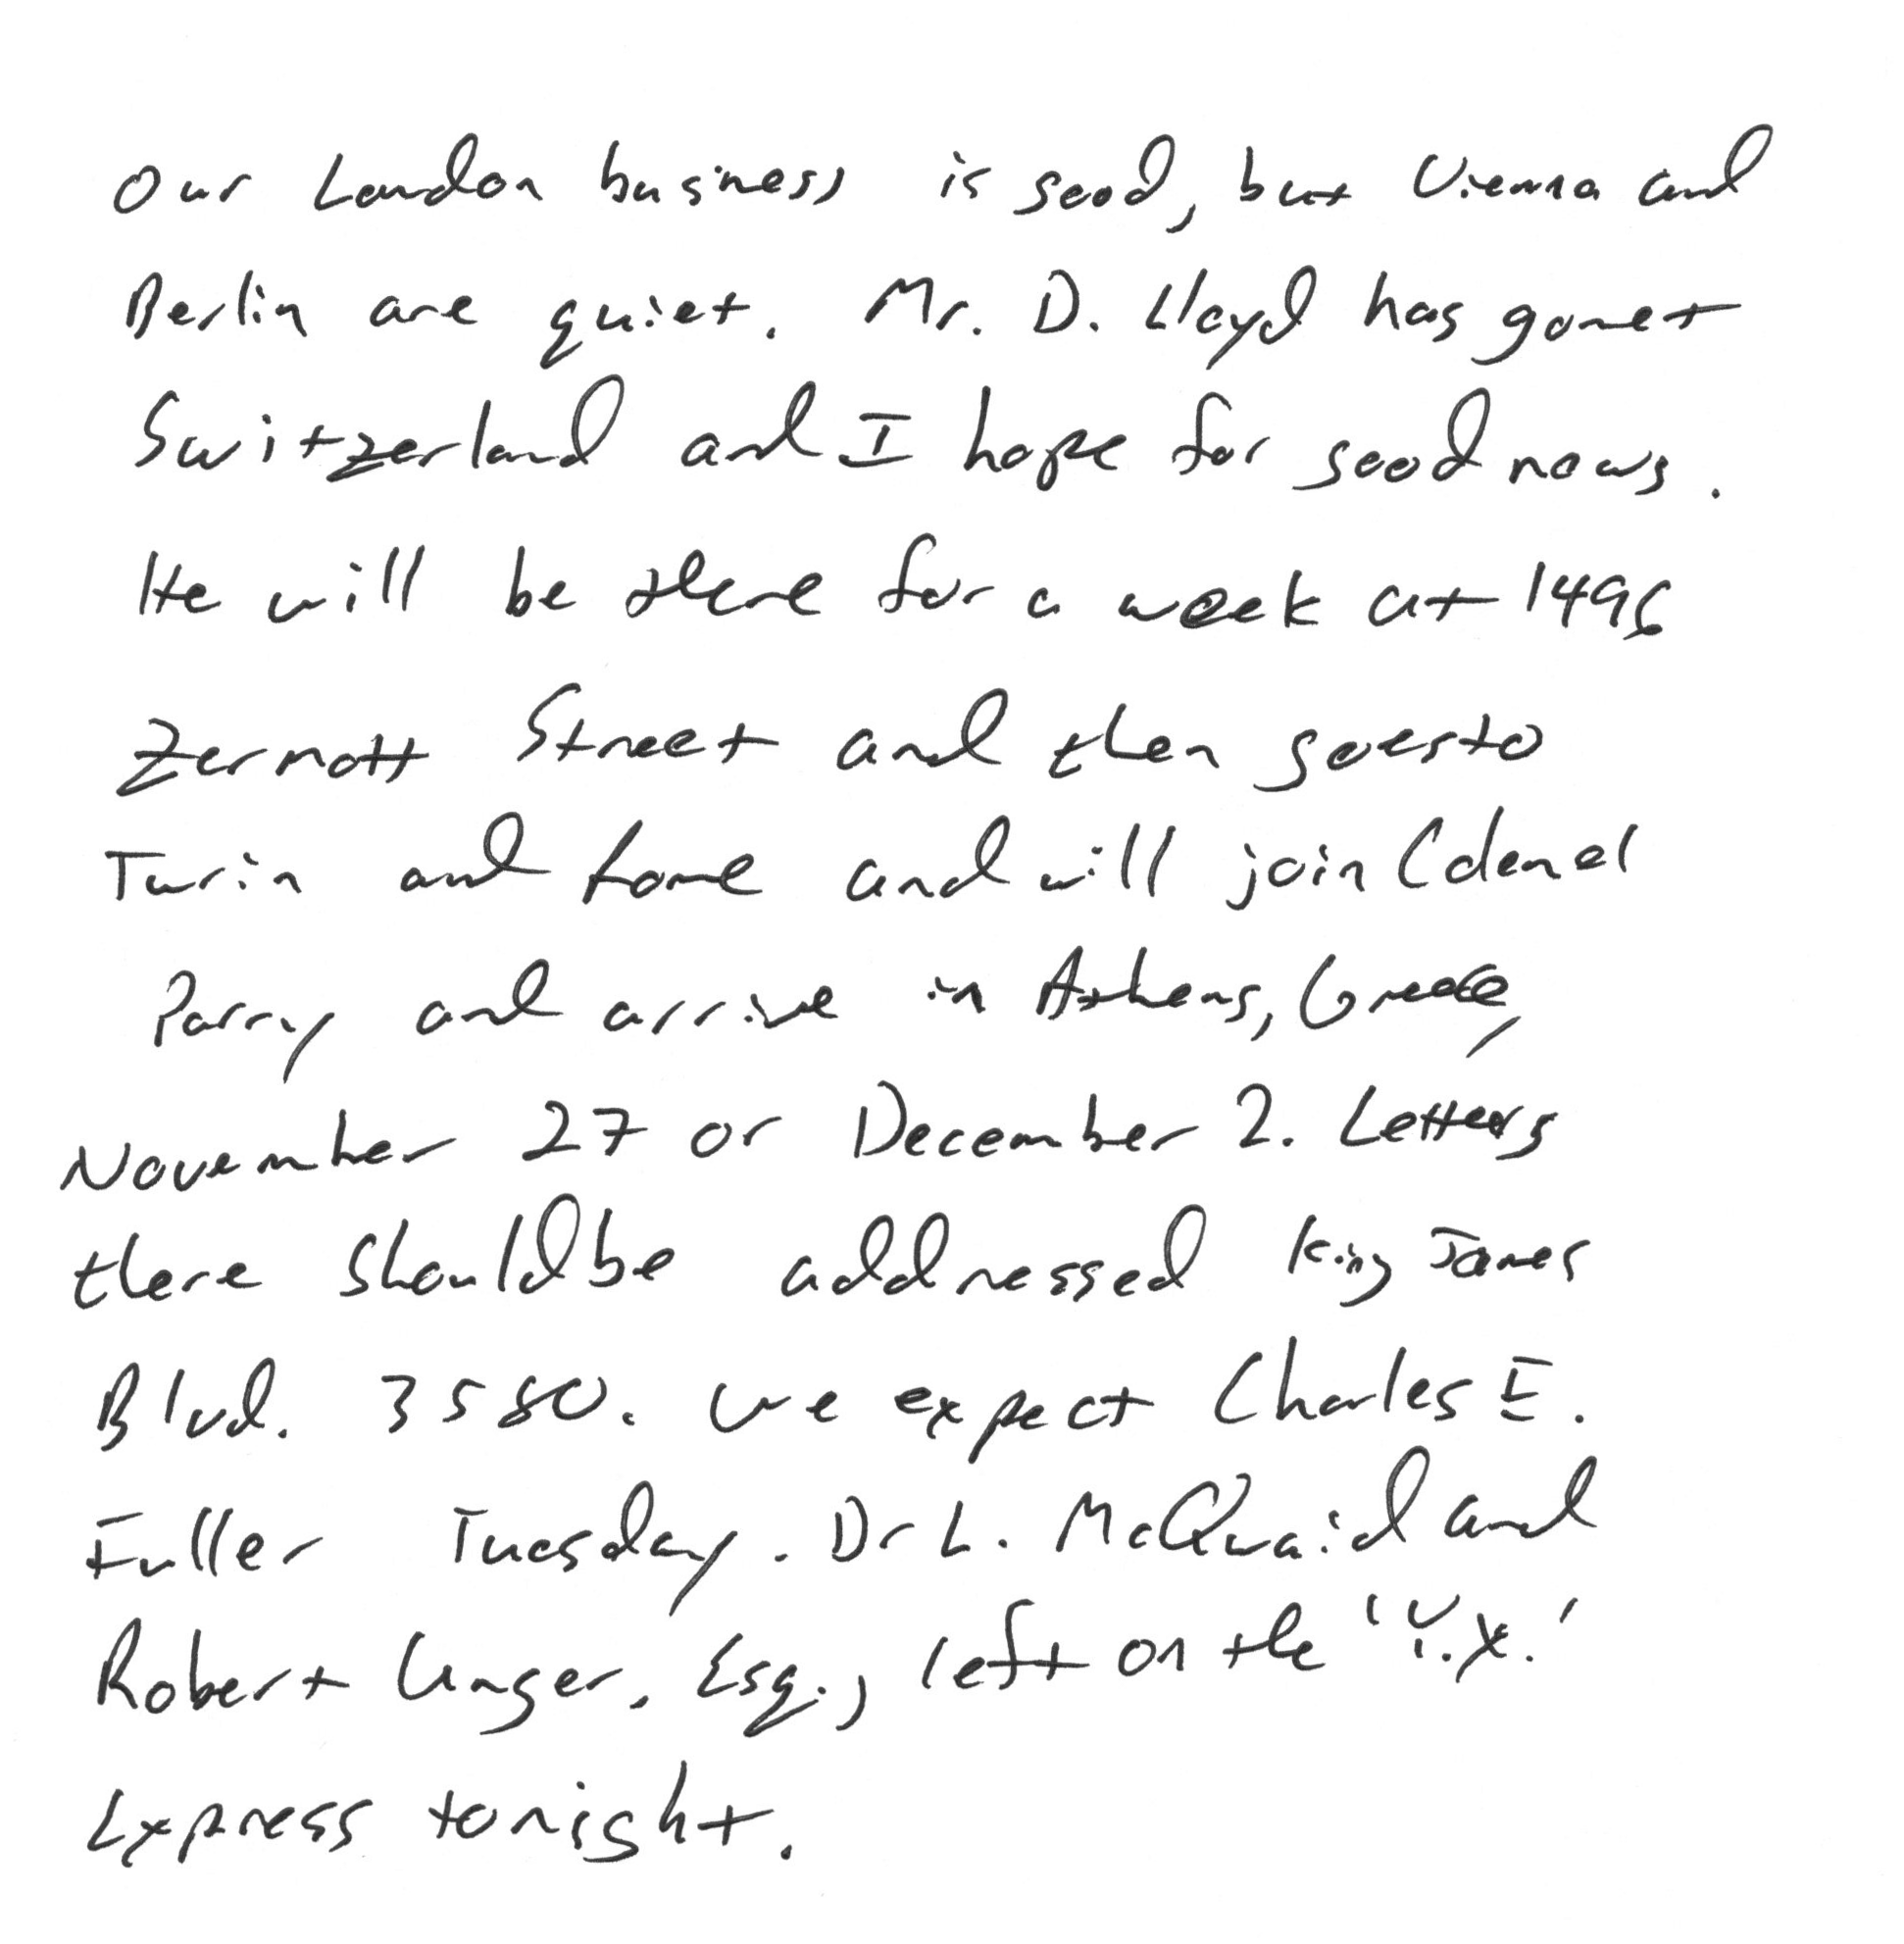 Our London business is good, but Vienna and
Berlin are quiet. Mr. D. Lloyd has gone t
Switzerland and I hope for good news.
He will be there for a week at 1496
Zermott Street and then goes to
Turin and Rome and will join Colonel
Parry and arrive in Athens, Greece,
November 27 or December 2. Letters
there should be addressed King James
Blvd. 3580. We expect Charles E.
Fuller Tuesday. Dr L. McQuaid and
Robert Unger, Esq., left on the 'Y.X.'
Express tonight.